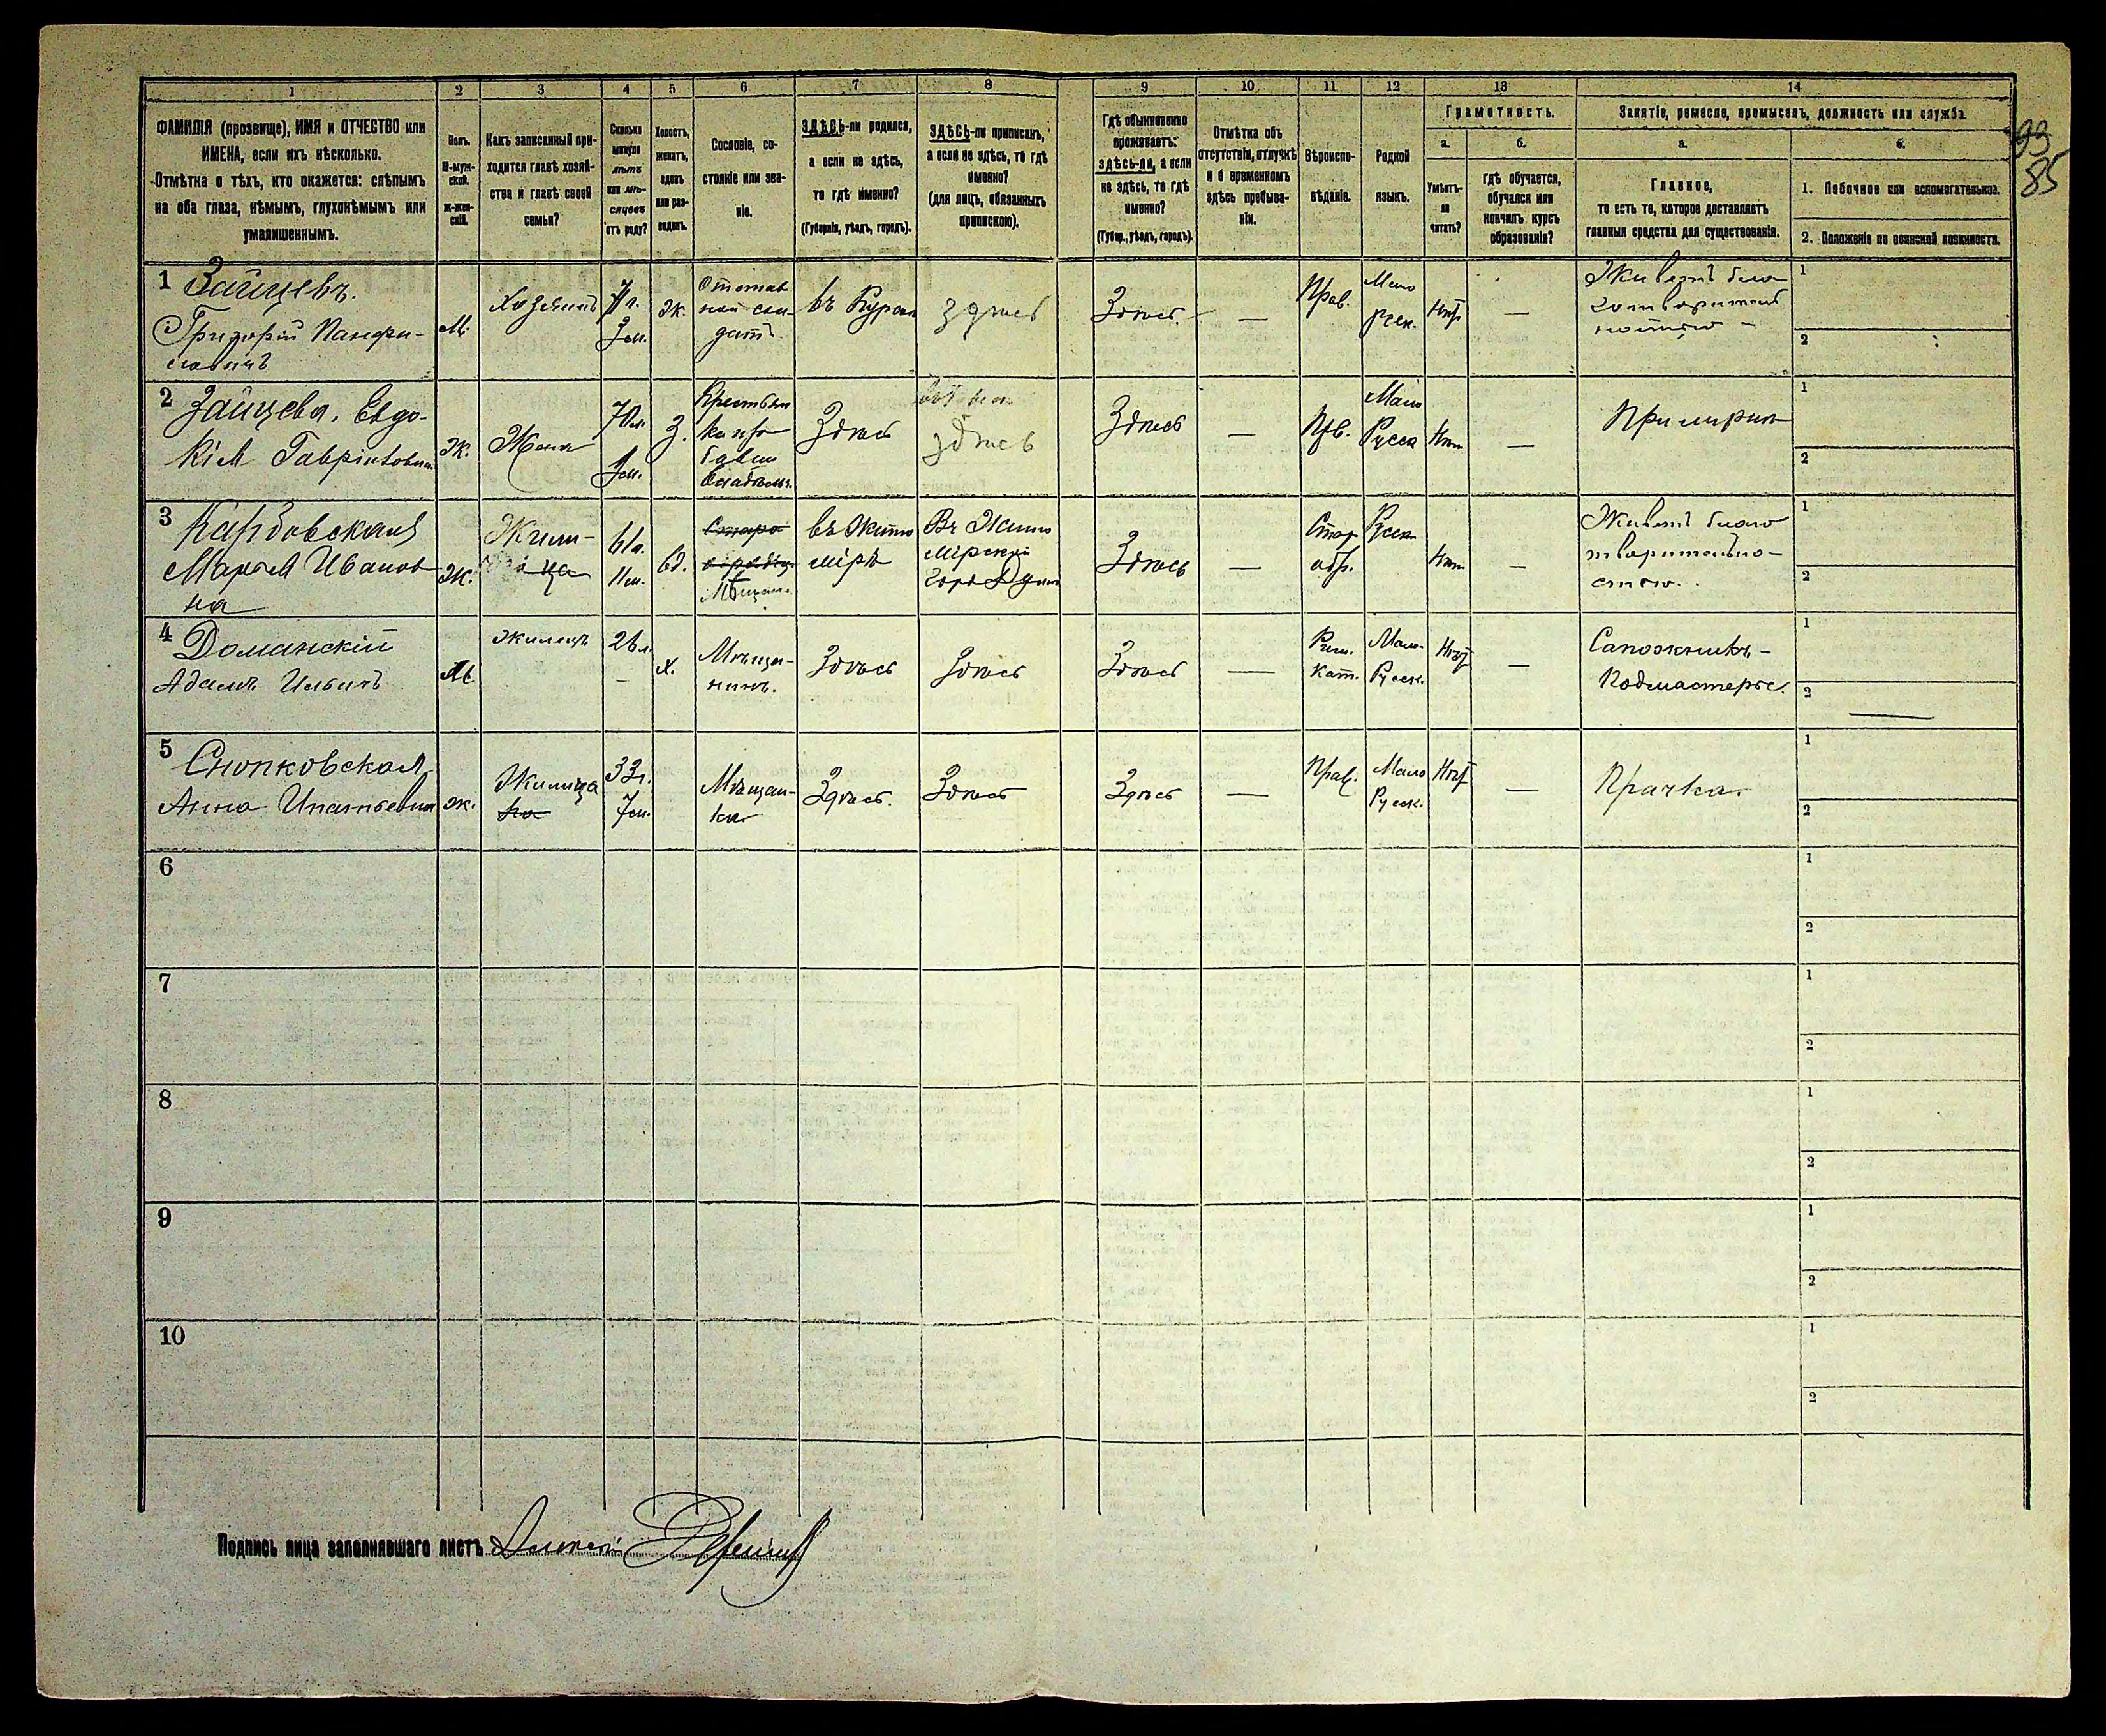 93
85
1
2
3
4
5
6
7
8
9
10
11
12
13
14
ФАМИЛІЯ (прозвище), ИМЯ и ОТЧЕСТВО или
ИМЕНА, если ихъ нѣсколько.
Отмѣтка о тѣхъ, кто окажется: слѣпымъ
на оба глаза, нѣмымъ, глухонѣмымъ или
умалишеннымъ.
Полъ.
М-муж-
ской.
Ж-жен-
скій.
Какъ записанный при-
ходится главѣ хозяй-
ства и главѣ своей
семьи?
Сколько
минуло
лѣтъ
или мѣ-
сяцевъ
отъ роду?
Холостъ,
женатъ,
вдовъ
или раз-
веденъ.
Сословіе, со-
стояніе или зва-
ніе.
ЗДѢСЬ-ли родился,
а если не здѣсь,
то гдѣ именно?
(Губернія, уѣздъ, городъ).
ЗДѢСЬ-ли приписанъ,
а если не здѣсь, то гдѣ
именно?
(для лицъ, обязанныхъ
припискою).
Гдѣ обыкновенно
проживаетъ:
здѣсь-ли, а если
не здѣсь, то гдѣ
именно?
(Губер., уѣздъ, городъ).
Отмѣтка объ
отсутствіи, отлучкѣ
и о временномъ
здѣсь пребыва-
ніи.
Вѣроиспо-
вѣданіе.
Родной
языкъ.
Грамотность.
а.
б.
Умѣетъ-
ли
читать?
гдѣ обучается,
обучался или
кончилъ курсъ
образованія?
Занятіе, ремесло, промыселъ, должность или служба.
а.
б.
Главное,
то есть то, которое доставляетъ
главныя средства для существованія.
1. Побочное или вспомогательное.
2. Положеніе по воинской повинности.
1 Зайцевъ.
Григорій Панфи-
ловичъ
М.
Хозяинъ
3 м.
Ж.
Отстав
ной сол-
датъ
здѣсь
Здѣсь
—
Прав.
Мало
русск.
Нѣт
—
Живетъ бла
готворитель
ностью -
1
2
2 Зайцева, Евдо-
кія
Ж.
Жена
70 л.
1 м.
З.
Крестьян
ка
Здѣсь
здѣсь
Здѣсь
—
Прв.
Мало
Русск
Нѣт
—
При мужѣ
1
2
3
Марья Иванов
на
Ж.
Жили-
ца
61 л.
11 м.
вд.
Старо
Мѣщан.
въ Жито
мірѣ
Въ Жито
мірской
Здѣсь
—
Стар
обр.
Русск
Нѣт
—
Живетъ благо
творительно-
стью.
1
2
4 Доманскій
Адамъ Ильичъ
М
Жилецъ
26 л.
—
Х.
Мѣща-
нинъ.
Здѣсь
Здѣсь
Здѣсь
—
Рим.
Кат.
Мало-
Русск.
Нѣт
—
Сапожникъ -
Подмастерье.
1
2
5 Снопковская
Анна Ипатьевна
Ж.
Жилица
ка
33 г.
7 м.
Мѣщан-
ка
Здѣсь.
Здѣсь
Здѣсь
—
Прав.
Мало
Русск.
Нѣт
—
Прачка.
1
2
6
1
2
7
1
2
8
1
2
9
1
2
10
1
2
Подпись лица заполнявшаго листъ